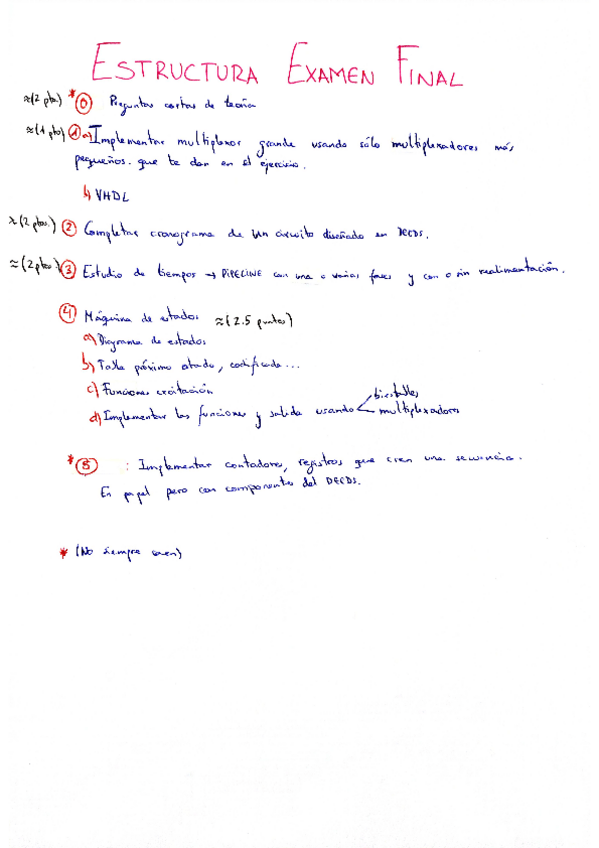 ESTRUCTURA EXAMEN FINAL
≈(2 pto) * 0 Preguntas cortas de teoría
≈(1 pto) 1 a) Implementar multiplexor grande usando sólo multiplexadores más
pequeños. que te dan en el ejercicio.
b) VHDL
≈(2 ptos.) 2 Completar cronograma de un circuito diseñado en DEEDS.
≈(2 ptos) 3 Estudio de tiempos → PIPELINE con una o varias fases y con o sin realimentación.
4 Máquina de estados ≈(2.5 puntos)
a) Diagrama de estados
b) Tabla próximo estado, codificada...
c) Funciones excitación
biestables
d) Implementar las funciones y salida usando multiplexadores
* 5 : Implementar contadores, registros que creen una secuencia.
En papel pero con componentes del DEEDS.
* (No siempre caen)